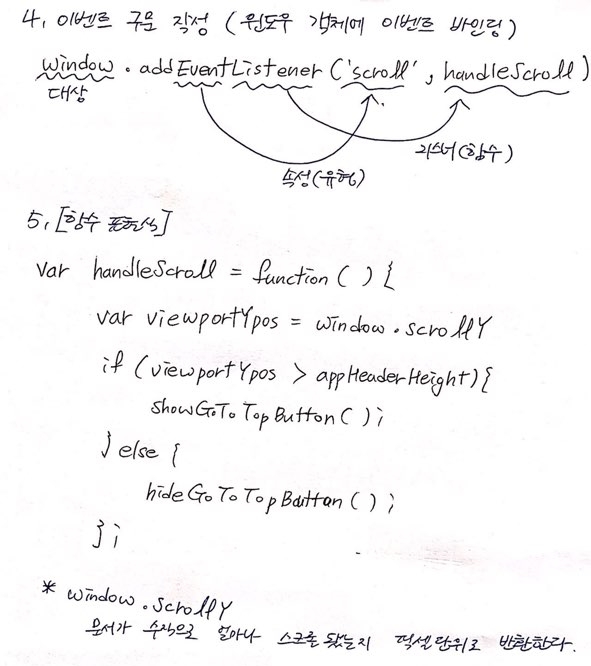 4. 이벤트 구문 작성 (윈도우 객체에 이벤트 바인딩)
window.addEventListener('scroll', handleScroll)
대상
리스너(함수)
속성(유형)
5. [함수 표현식]
var handleScroll = function() {
var viewportYpos = window.scrollY
if (viewportYpos > appHeaderHeight) {
showGoToTopButton();
} else {
hideGoToTopButton();
};
* window.scrollY
문서가 수직으로 얼마나 스크롤 됐는지 픽셀 단위로 반환한다.